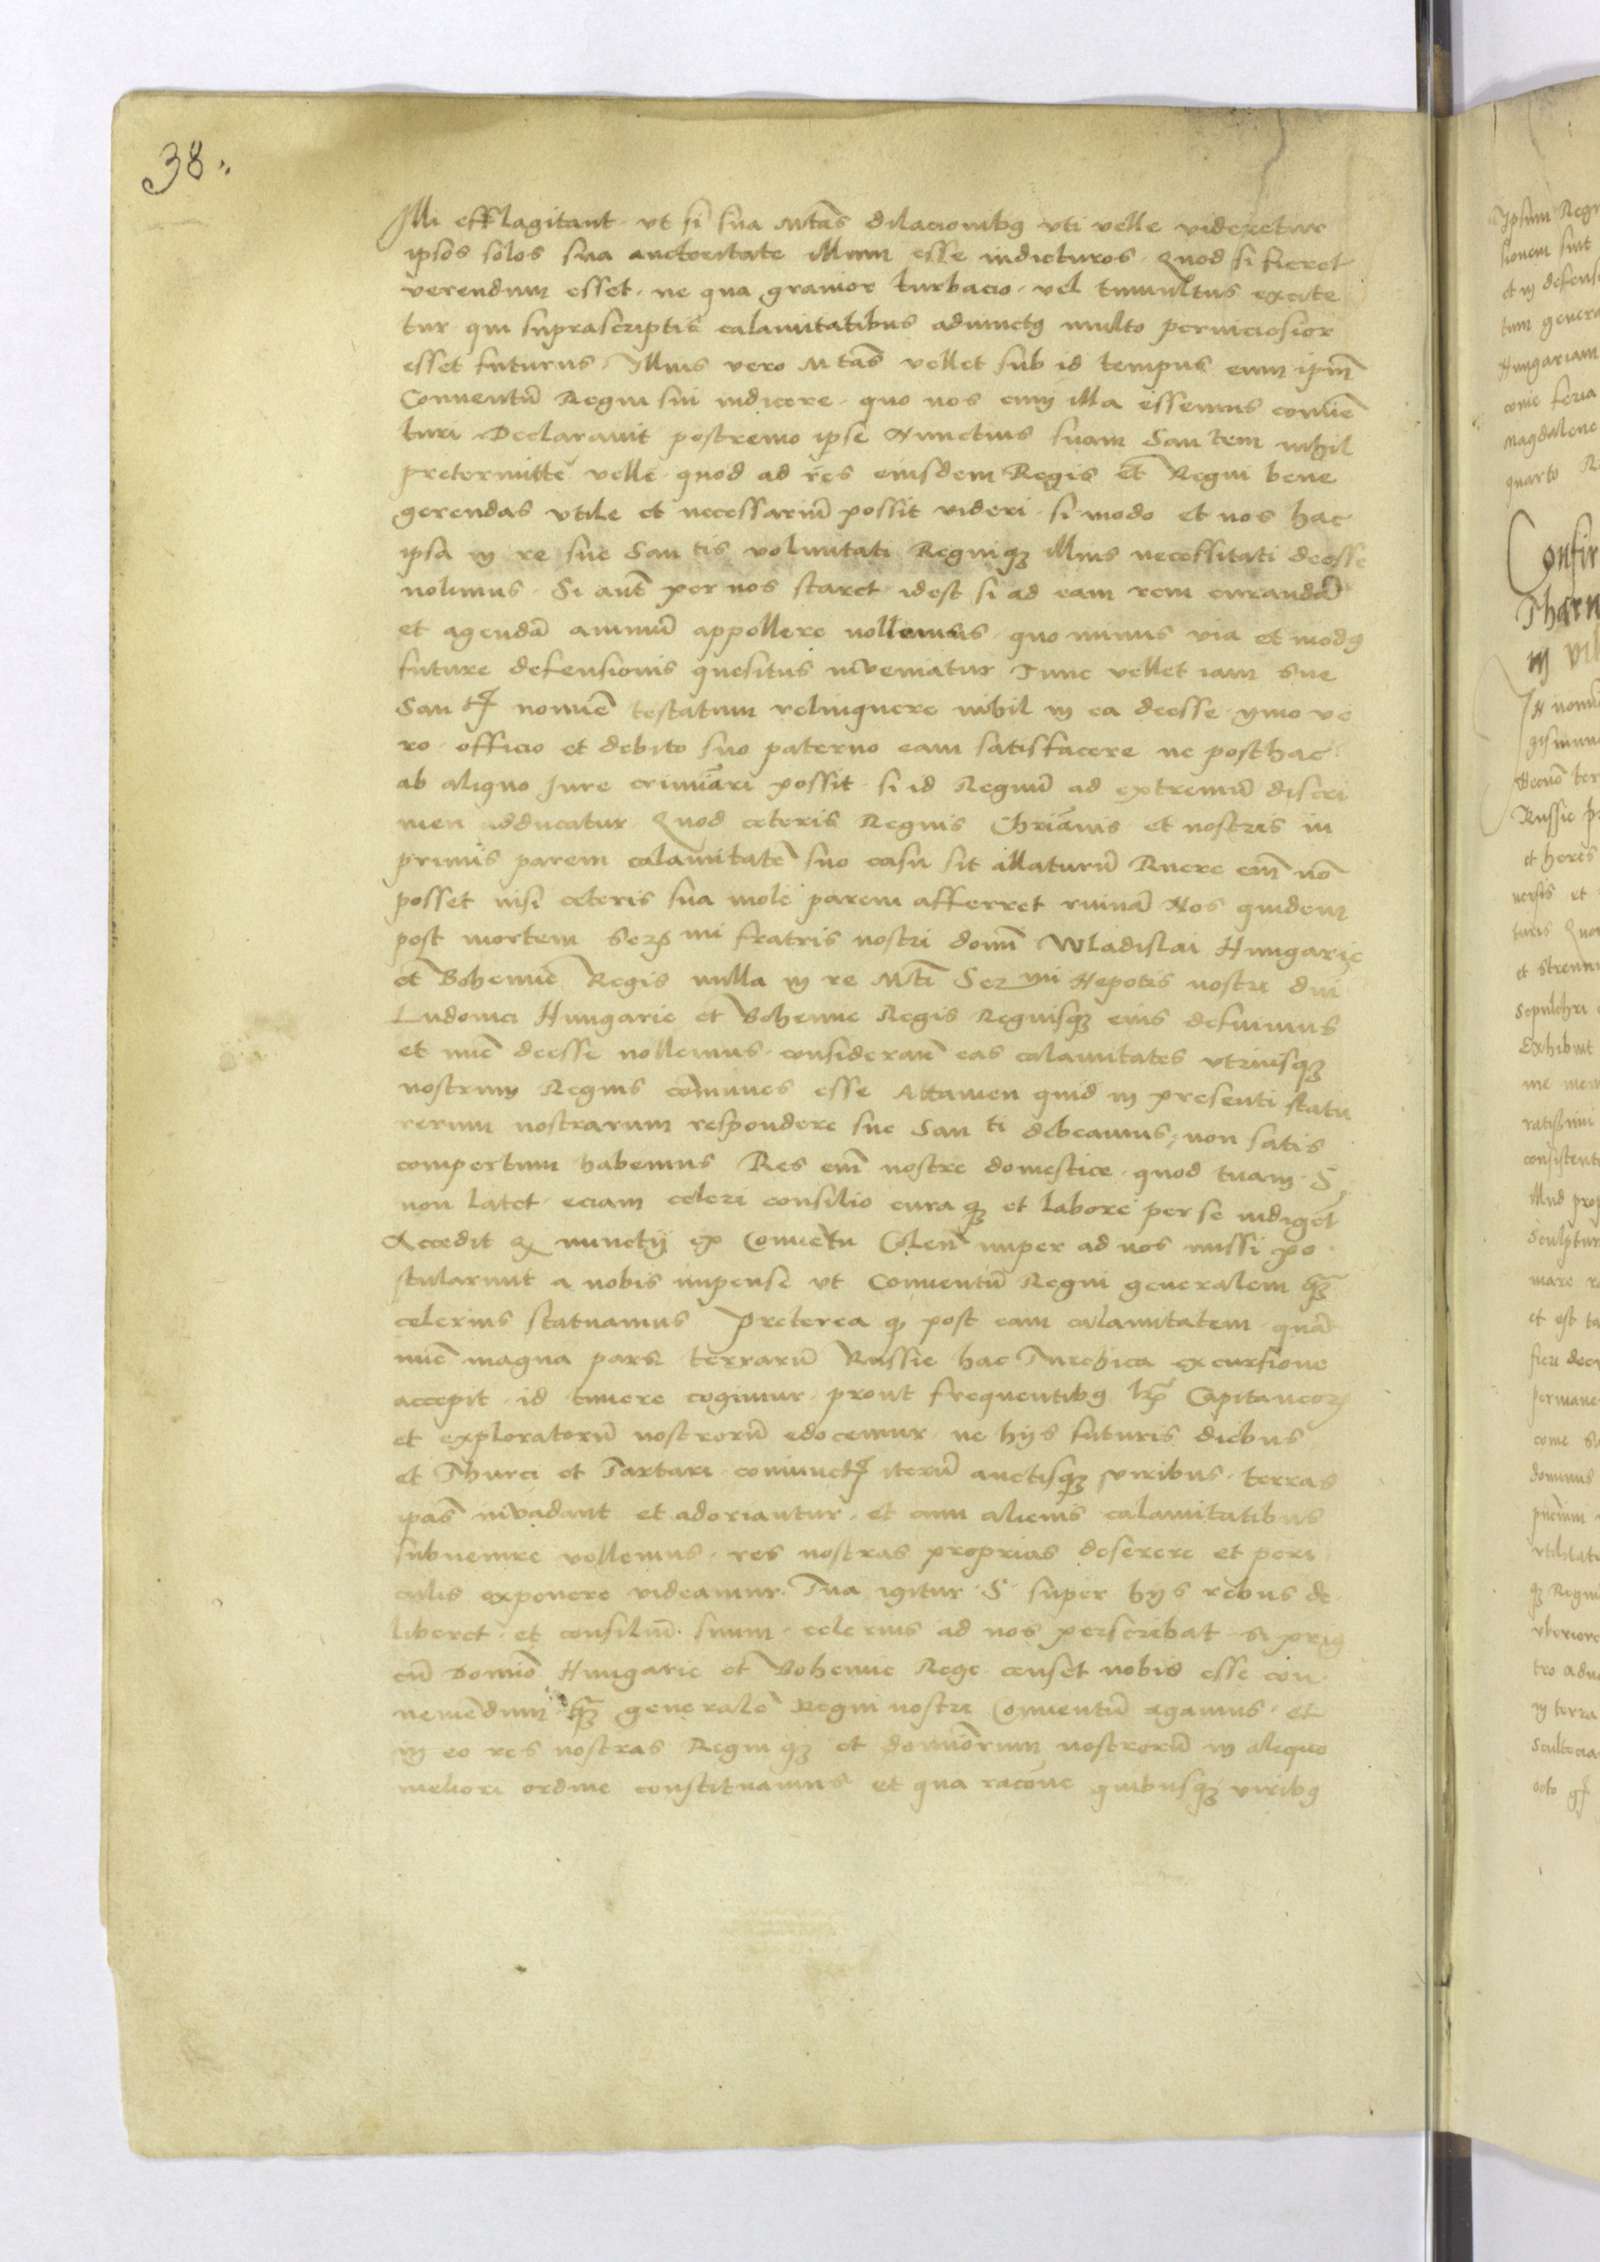 38
Illi efflagitant ut si sua Mtas dilacionibꝰ uti velle videretur
ipsos solos sua auctoritate illum esse indicturos. Quod si fieret
verendum esset. ne qua gravior turbacio. vel tumultus excite
tur. qui suprascriptis calamitatibus adiunctꝰ multo perniciosior
esset futurus. Illius vero Mtas vellet sub id tempus eum ipm̄
Conventū Regni sui indicere. quo nos cum illa essemus convē
turi Declaravit postremo ipse Nunctius suam Sanctem nihil
pretermittē velle. quod ad res eiusdem Regis et Regni bene
gerendas utile et necessariū possit videri. si modo et nos hac
ipsa in re sue Sanctis voluntati Regniqꝫ illius necessitati deesse
nolimus. Si aut̄ per nos staret. idest si ad eam rem curandā
et agendā animū appellere nollemus. quo minus via et modꝰ
future defensionis quesitus inveniatur Tunc vellet iam sue
San nomē testatum relinquere nihil in ea deesse. ymo ve
ro. officio et debito suo paterno eam satisfacere ne posthac
ab aliquo Jure criminari possit. si id Regnū ad extremū discri
men adducatur Quod ceteris Regnis Chrianis et nostris in
primis parem calamitatē suo casu sit illaturū Ruere em̄ nō
posset nisi ceteris sua mole parem afferret ruinā Nos quidem
post mortem Serꝫ mi fratris nostri domi Wladislai Hungarie
et Bohemie Regis nulla in re Mti Ser mi Nepotis nostri dni
Ludovici Hungarie et Bohemie Regis Regnisqꝫ eius defuimus
et nūc deesse nollemus. consideran̄ eas calamitates utriusqꝫ
nostrum Regnis comunes esse Attamen quid in presenti statu
rerum nostrarum respondere sue San ti debeamus, non satis
compertum habemus Res em̄ nostre domestice. quod tuam. S.
non latet. eciam celeri consilio cura qꝫ et labore per se indigēt
Accedit qꝫ nunctij ex Conventu Colen̄ nuper ad nos missi po
stularunt a nobis impense ut Conventū Regni generalem qꝫ
celerius statuamus Preterea qꝫ post eam calamitatem quā
nūc magna pars terrarū Russie hac Turchica excursione
accepit. id timere cogimur. prout frequentibꝰ lrīs Capitaneorꝫ
et exploratorū nostrorū edocemur. ne hijs futuris diebus
et Thurci et Tartari coniuncti iterū auctisqꝫ viribus. terras
ipas̄ invadant et adoriantur. et cum alienis calamitatibus
subvenire vellemus. res nostras proprias deserere et peri
culis exponere videamur. Tua igitur. S. super hijs rebus de
liberet. et consiliū. suum. celerius ad nos perscribat. si priꝰ
cū Domino Hungarie et Bohemie Rege censet nobis esse con
veniendum qꝫ generalē Regni nostri Conventū agamus. et
in eo res nostras Regni qꝫ et dominorum nostrorū in aliquo
meliori ordine constituamus et qua racōne quibusqꝫ viribꝰ